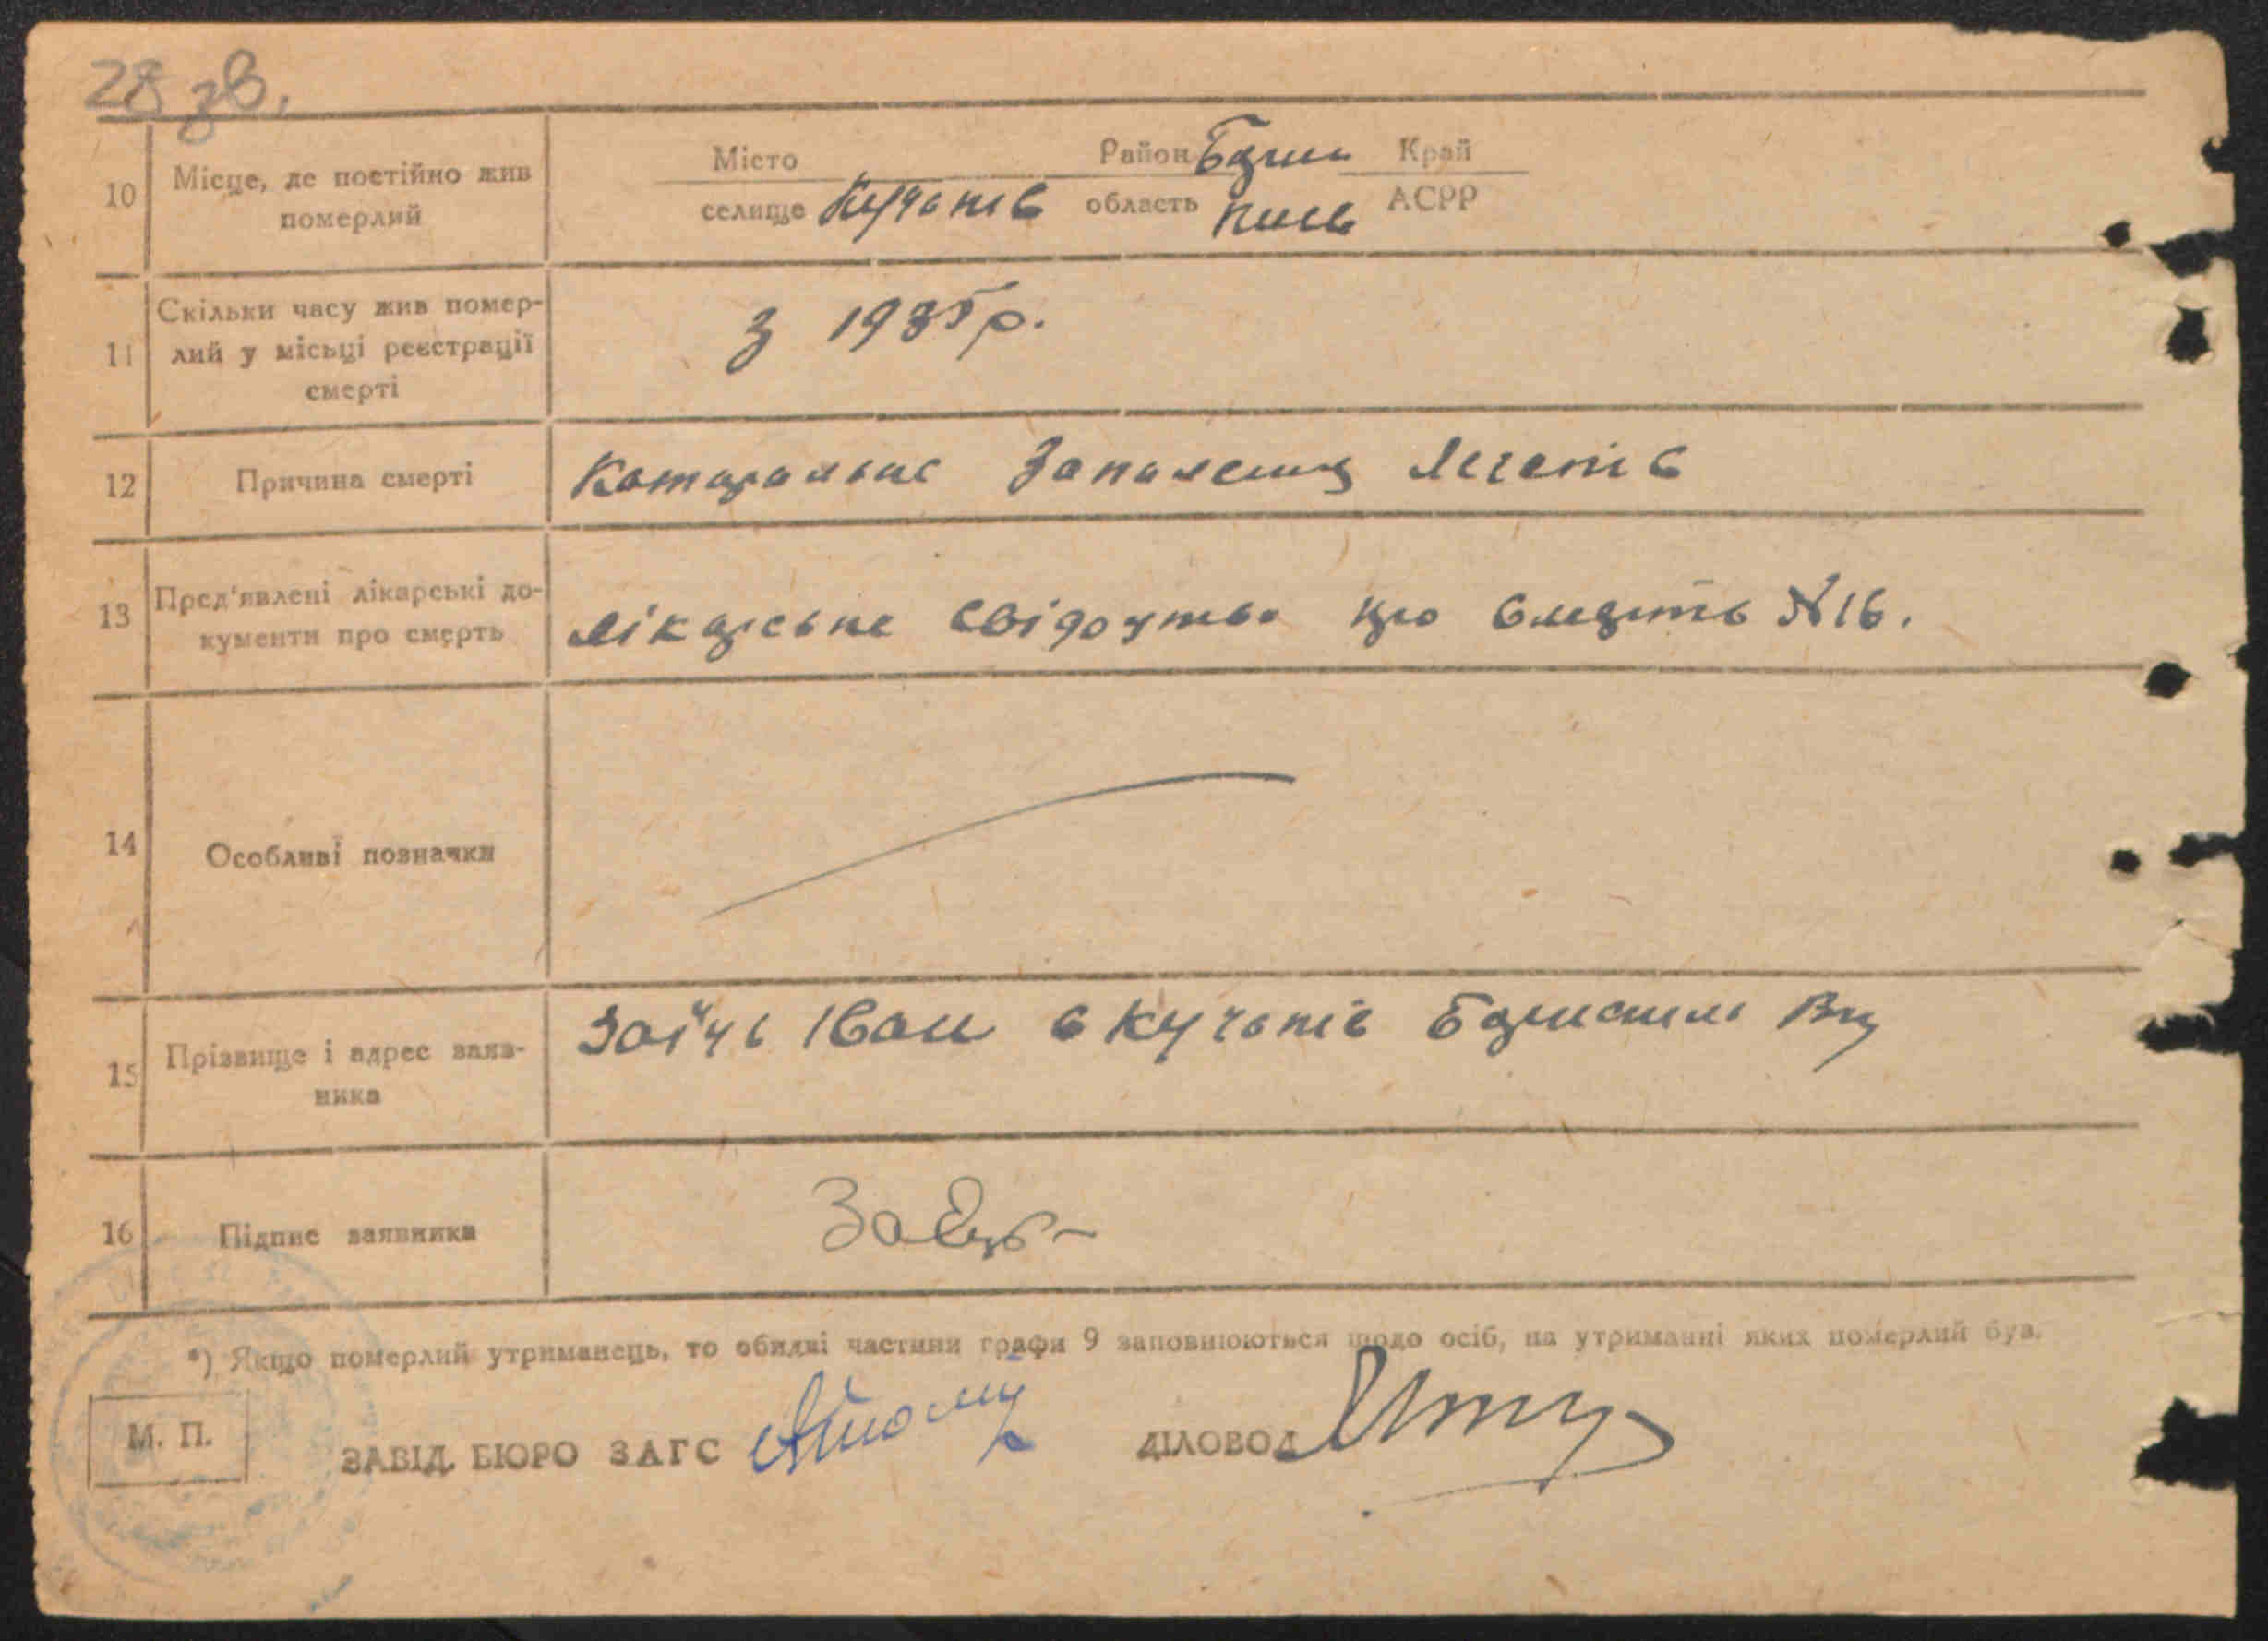 28 зв.
10 Місце, де постійно жив померлий
Місто Район Бориш Край
селище Кучаків область Київ АСРР
11 Скільки часу жив помер-
лий у місьці реєстрації
смерті
З 1935 р.
12 Причина смерті Катаральне Запалення Легенів
13 Пред'явлені лікарські до-
кументи про смерть
лікарське свідоцтво про смерть №16.
14 Особливі позначки
15 Прізвище і адрес заяв-
ника
Заїць Іван с Кучаків
16 Підпис заявника Заєць
*) Якщо померлий утриманець, то обидві частини графи 9 заповнюються щодо осіб, на утриманні яких померлий був.
М. П.
ЗАВІД. БЮРО ЗАГС ДІЛОВОД